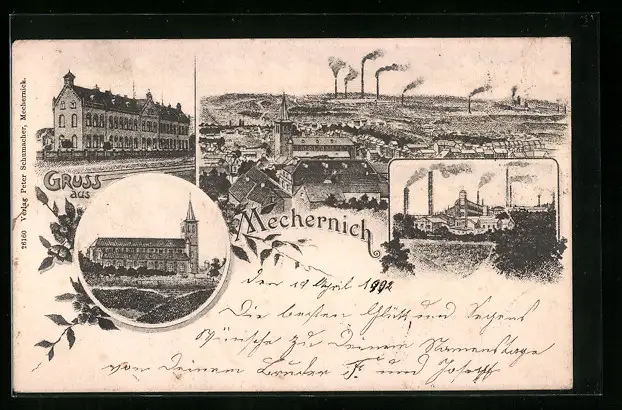 26160 Verlag Peter Schumacher, Mechernich.
GRUSS
aus
Mechernich
den 19 April 1902
Die besten Glück und Segens
Wünsche zu Deinem Namenstage
von Deinem Bruder Fr. und Joseph